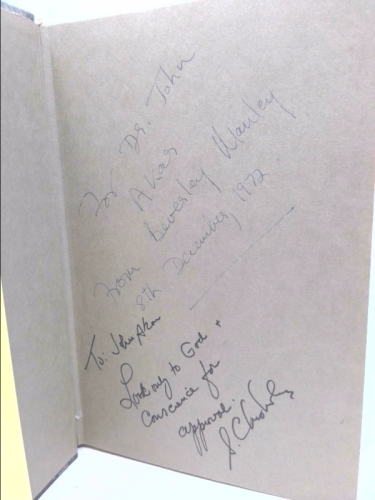 For Dr. John
Akar
From Beverley Manley
8th December, 1972.
To: John Akar
Look only to God +
Conscience for
approval.
S.